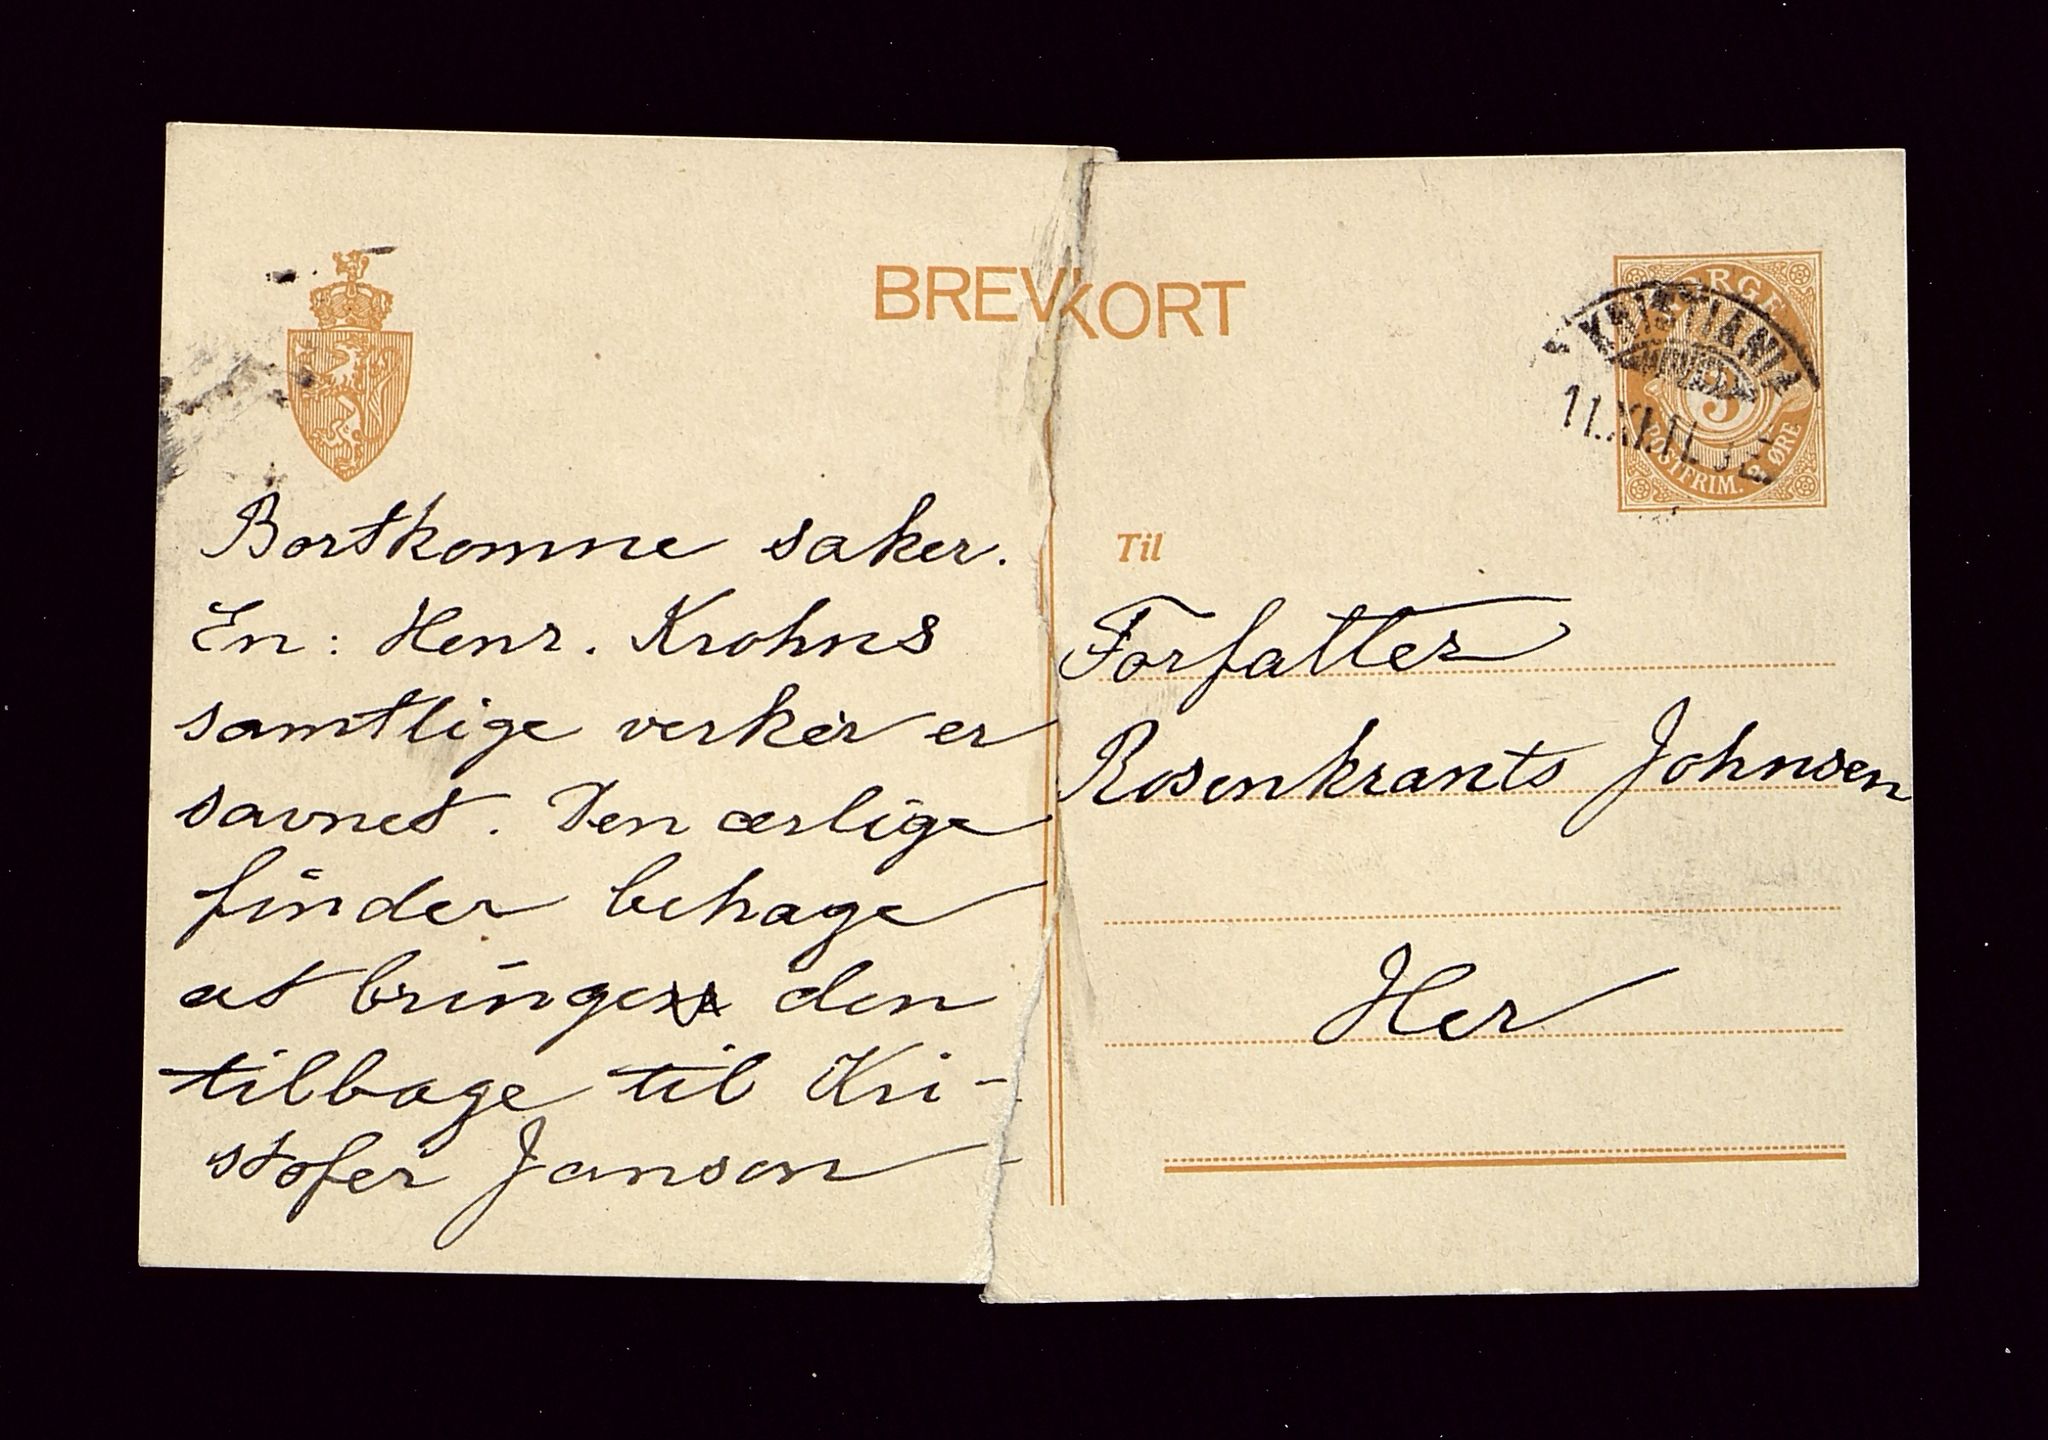 BREVKORT
Bortkomne saker.
En: Henr. Krohns
samtlige verker er
savnet. Den ærlige
finder behage
at bringe den
tilbage til Kri-
stofer Janson
NORGE
3
POSTFRIM. 3 ØRE
KRISTIANIA
11.XI.11
Til
Forfatter
Rosenkrants Johnsen
Her